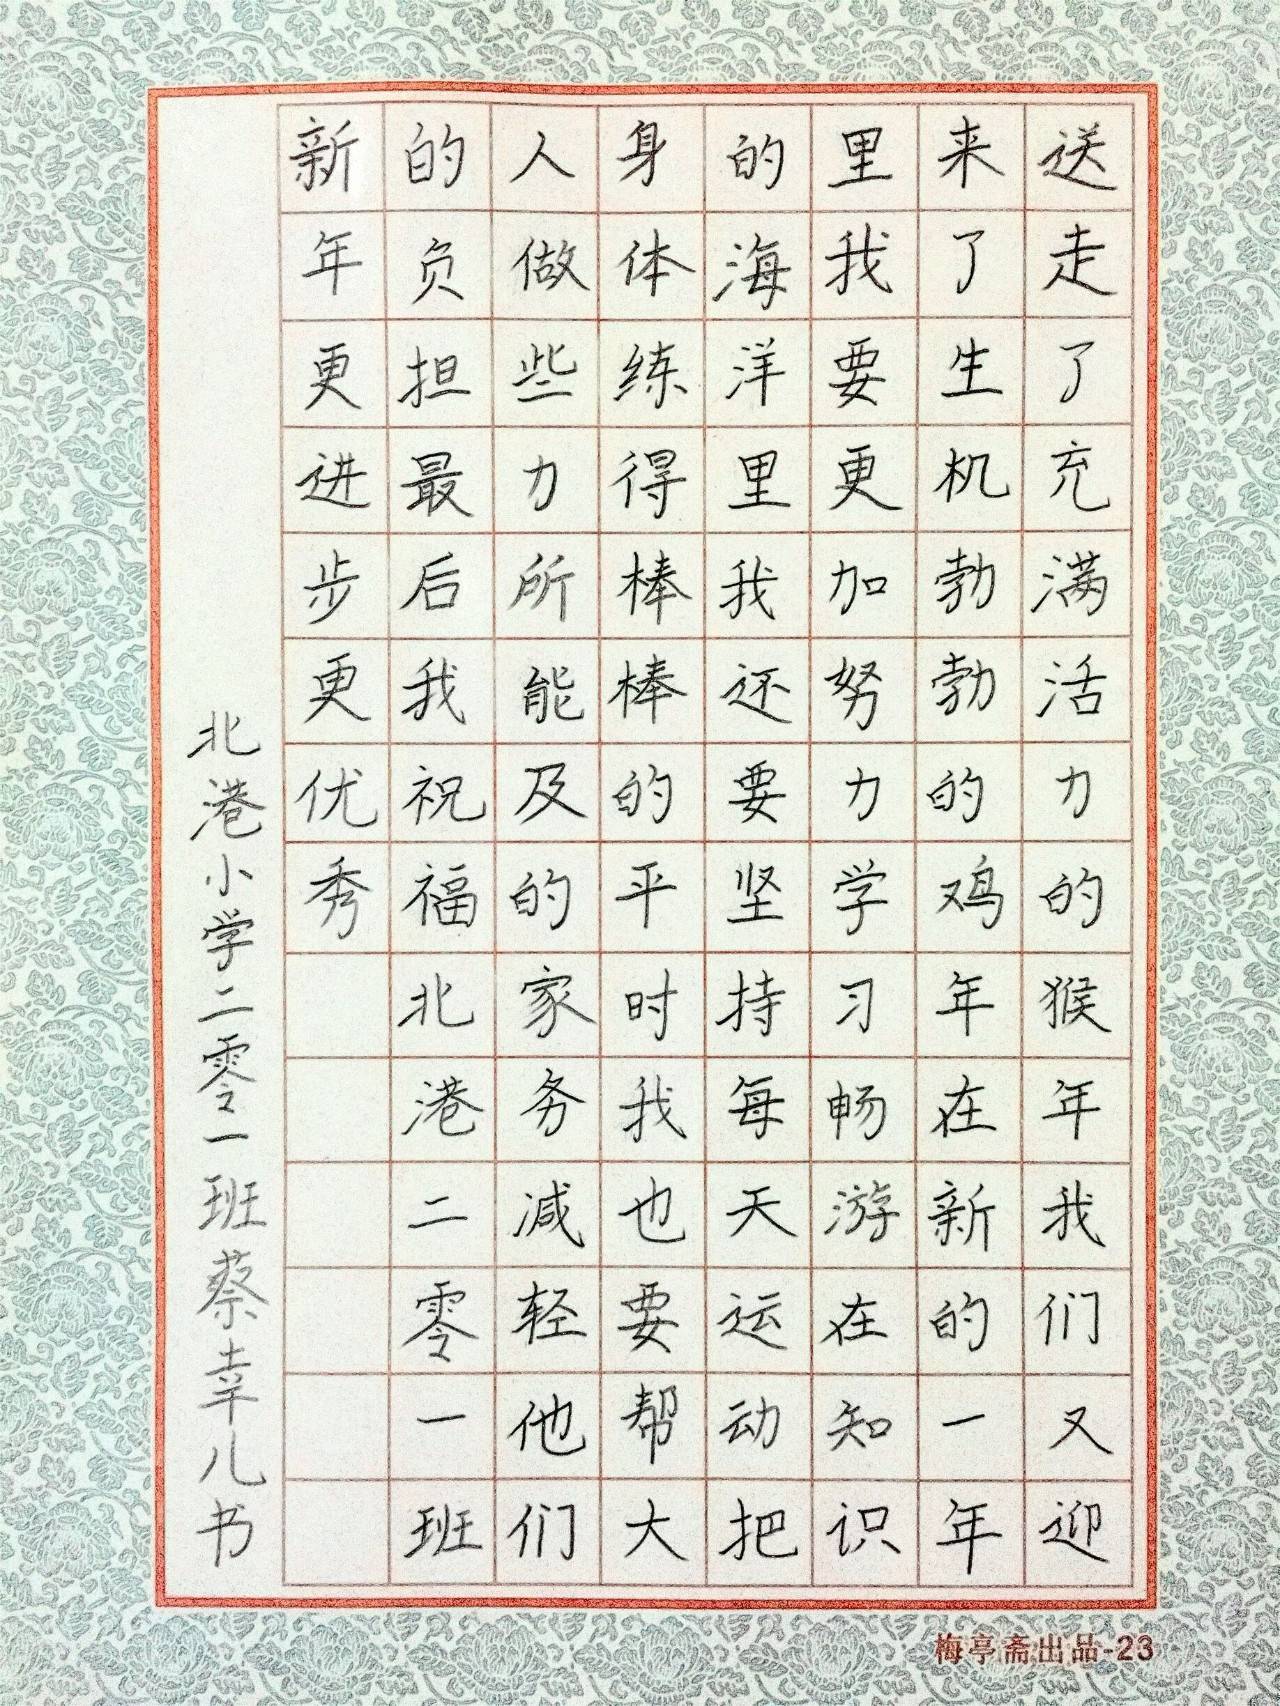 送走了充满活力的猴年我们又迎
来了生机勃勃的鸡年在新的一年
里我要更加努力学习畅游在知识
的海洋里我还要坚持每天运动把
身体练得棒棒的平时我也要帮大
人做些力所能及的家务减轻他们
的负担最后我祝福北港二零一班
新年更进步更优秀
北港小学二零一班蔡幸儿书
梅亭斋出品-23